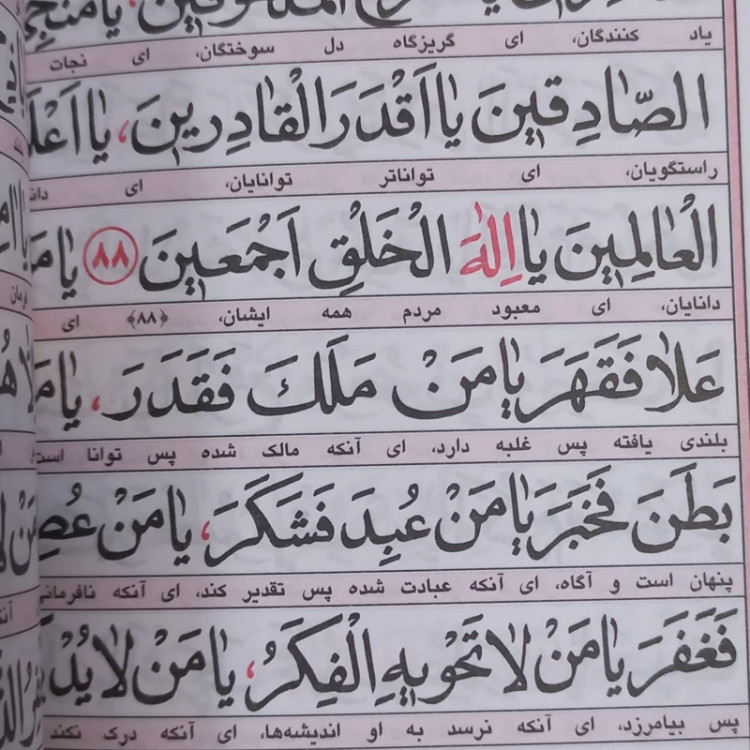 یاد کنندگان، ای گریزگاه دل سوختگان، ای نجات
الصّادِقینَ یا اَقْدَرَ الْقادِرینَ، یا اَعْلَ
راستگویان، ای تواناتر توانایان، ای
الْعالِمینَ یا اِلهَ الْخَلْقِ اَجْمَعینَ ﴿۸۸﴾ یا مَ
دانایان، ای معبود مردم همه ایشان، ﴿۸۸﴾ ای
عَلا فَقَهَرَ یا مَنْ مَلَکَ فَقَدَرَ، یا مَ
بلندی یافته پس غلبه دارد، ای آنکه مالک شده پس توانا است
بَطَنَ فَخَبَرَ یا مَنْ عُبِدَ فَشَکَرَ، یا مَنْ عُصِ
پنهان است و آگاه، ای آنکه عبادت شده پس تقدیر کند، ای آنکه نافرمانی
فَغَفَرَ یا مَنْ لا تَحْویهِ الْفِکَرُ، یا مَنْ لا یُدْ
پس بیامرزد، ای آنکه نرسد به او اندیشه‌ها، ای آنکه درک نکند